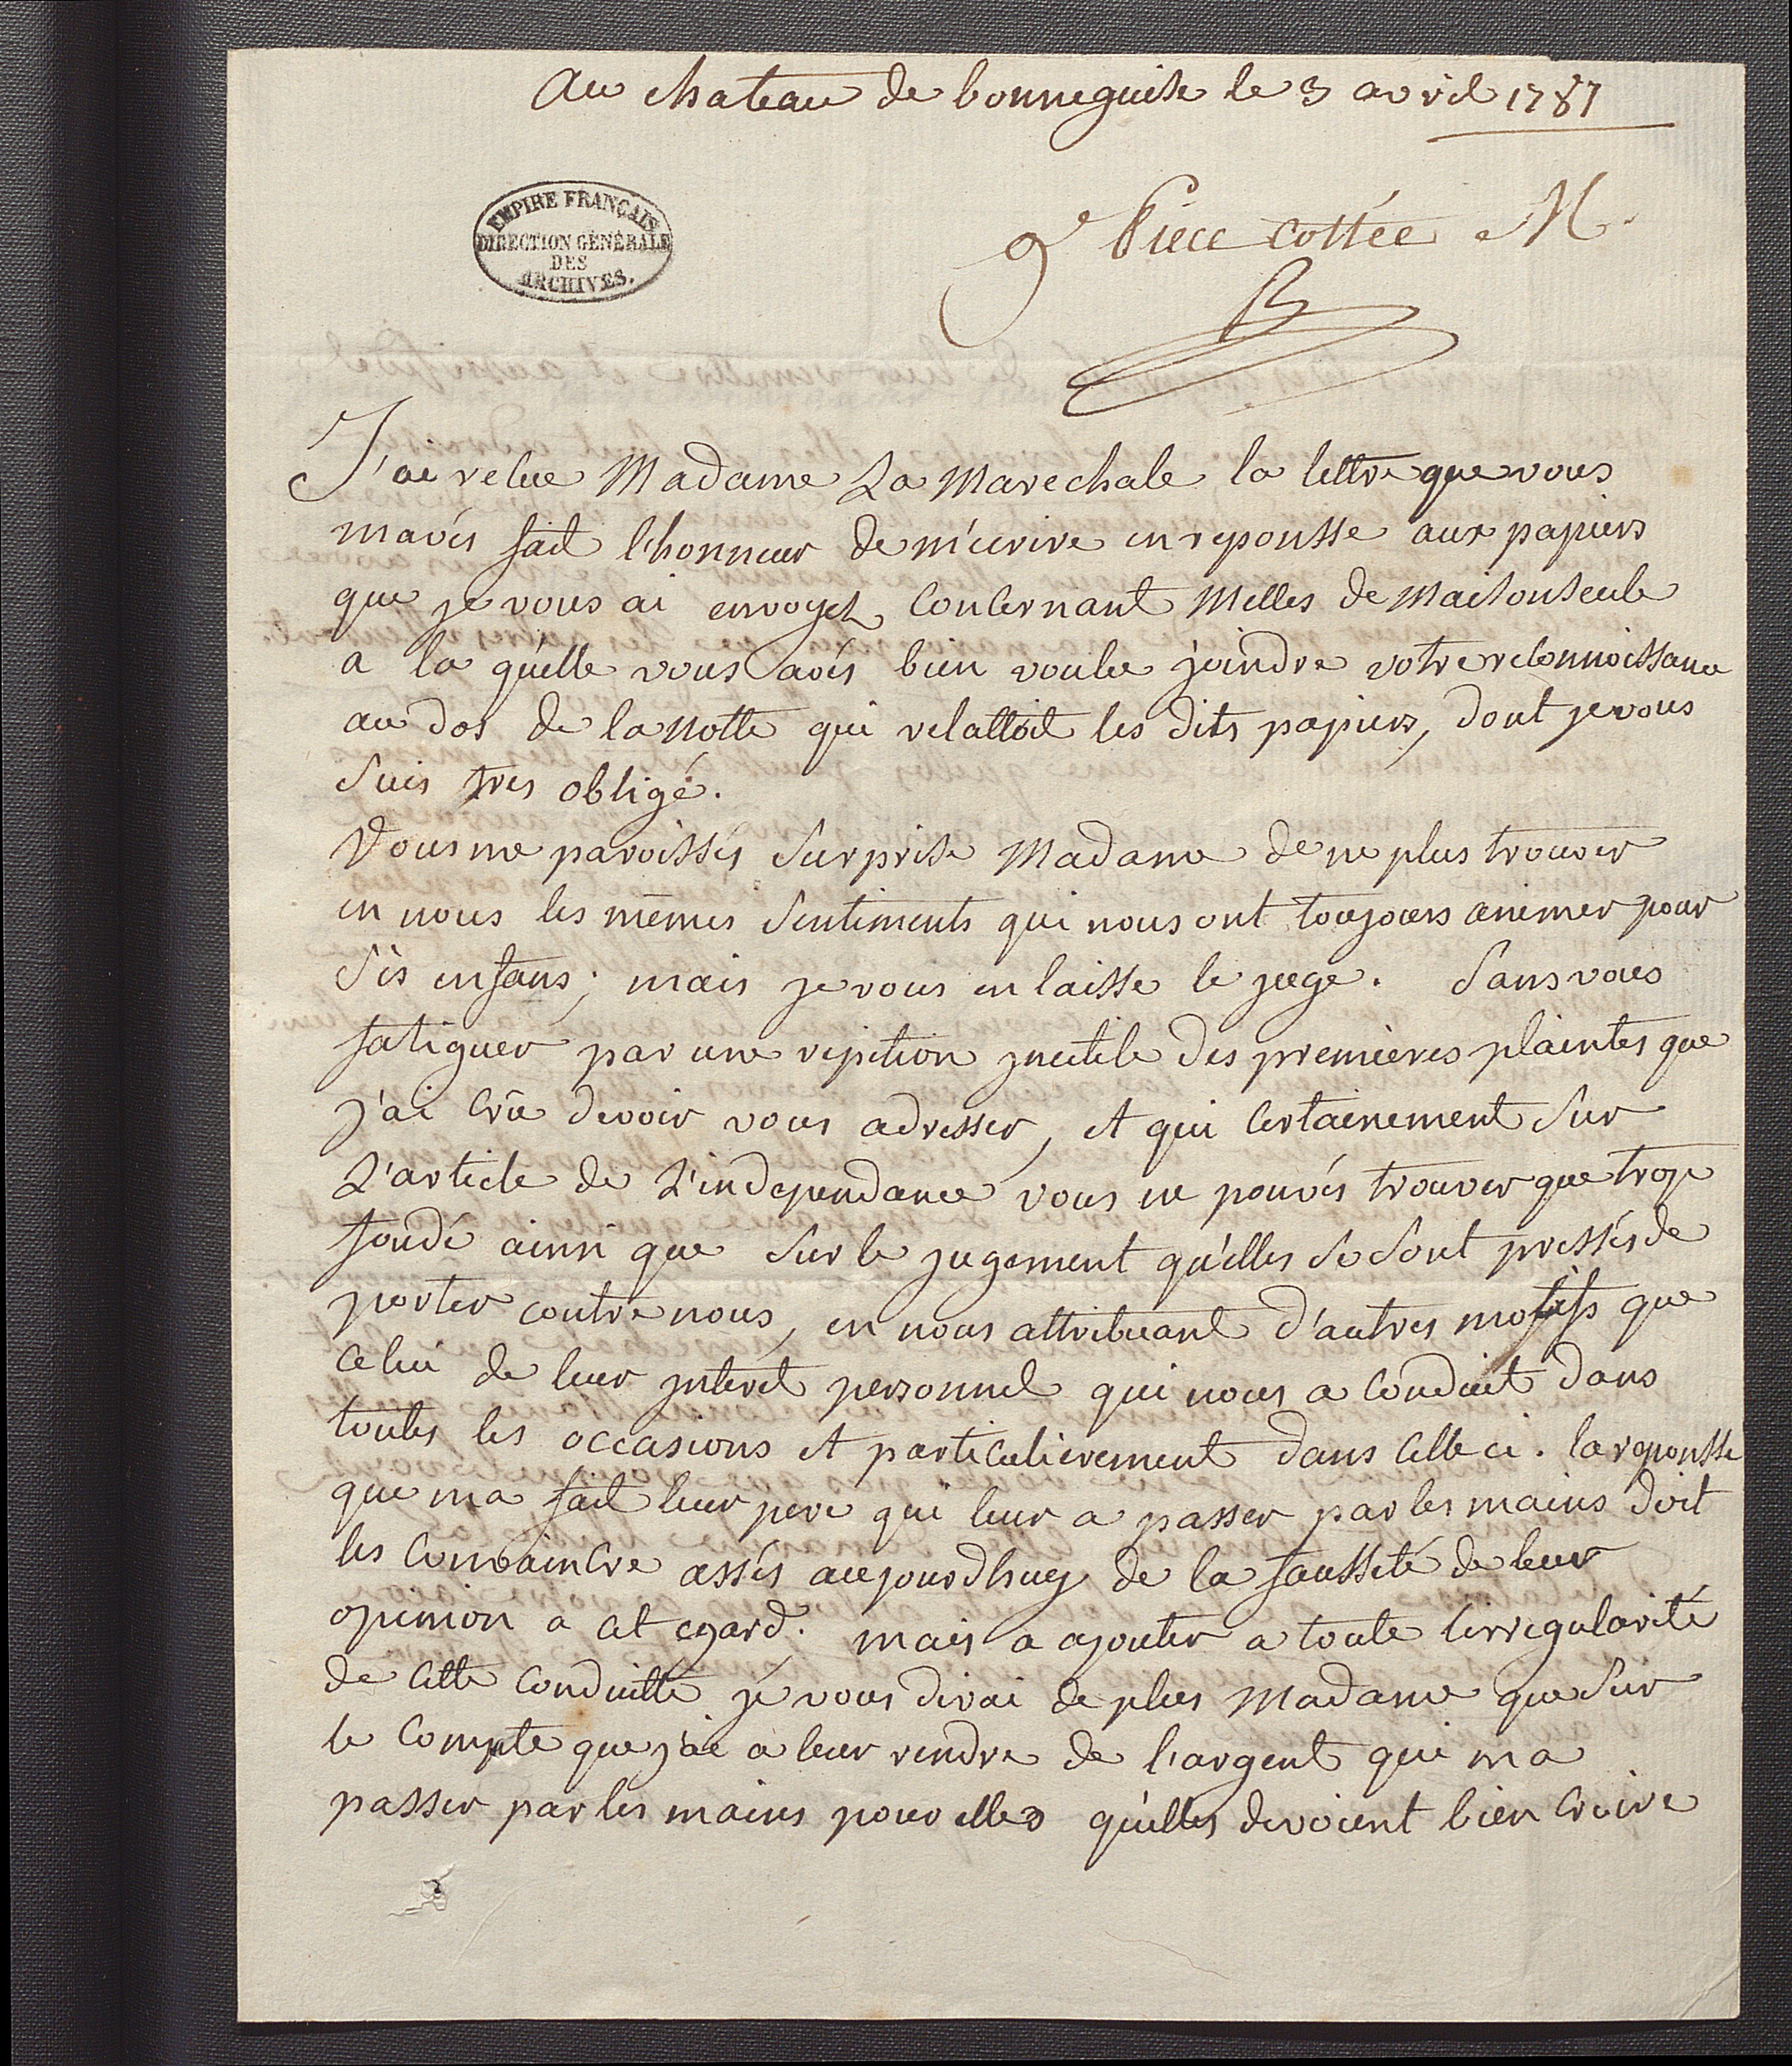 Au chateau de bonneguise le 3 avril 1787
EMPIRE FRANÇAIS
DIRECTION GÉNÉRALE
DES
ARCHIVES.
9e Piece cottée M.
J'ai relue Madame La Marechale la lettre que vous
mavés fait l'honneur de m'ecrire en reponsse aux papiers
que je vous ai envoyez concernant Melles de Maisonseule
a la quelle vous avés bien voulu joindre votre reconnoissance
au dos de la notte qui relattoit les dits papiers, dont je vous
suis tres obligé.
Vous me paroissés surprise Madame de ne plus trouver
en nous les mêmes sentiments qui nous ont toujours animer pour
sès enfans; mais je vous en laisse le juge. Sans vous
fatiguer par une repition jnutile des premieres plaintes que
j'ai crû devoir vous adresser, et qui certainement sur
L'article de L'independance vous ne pouvés trouver que trop
fondé ainsi que sur le jugement qu'elles se sont pressés de
porter contre nous, en nous attribuant d'autres motifs que
celui de leur jnteret personnel qui nous a conduit dans
toutes les occasions et particulierement dans celle ci. la reponsse
que ma fait leur pere qui leur a passer par les mains doit
les convaincre assés aujourdhuy de la faussété de leur
opinion a cet egard. mais a ajouter a toute l'irregularité
de cette conduitte je vous dirai de plus Madame que sur
le compte que j'ai a leur rendre de l'argent qui m a
passer par les mains pour elles qu'elles devoient bien croire